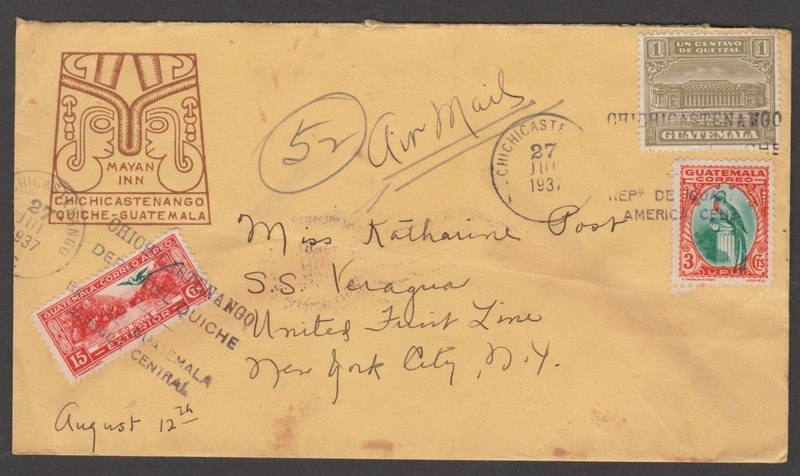 MAYAN
INN
CHICHICASTENANGO
QUICHE-GUATEMALA
52
Air Mail
1 UN CENTAVO 1
DE QUETZAL
GUATEMALA
CHICHICASTENANGO
CHICHICASTE
27
JUL
1937
REPª DE GUA
AMERICA CEN
GUATEMALA
CORREO
3 Cts
UPU
Miss Katharine Post
S.S. Veragua
United Fruit Line
New York City, N.Y.
CHICHICASTENANGO
27
JUL
1937
GUATEMALA-CORREO AEREO
Cts
15 EXTERIOR
CHICHICASTENANGO
DEP QUICHE
GUATEMALA
CENTRAL
August 12th